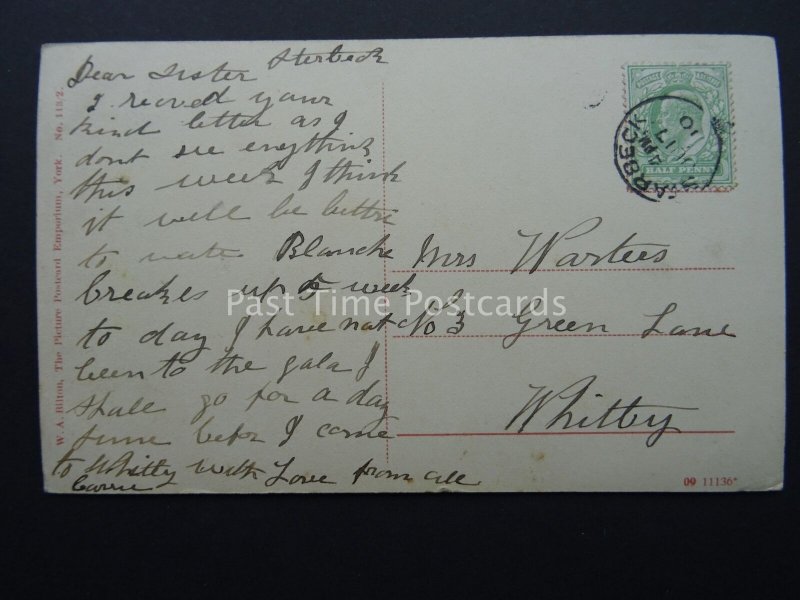 Dear Sister Sterbeck
I recved your
kind letter as I
dont see enything
this week I think
it will be bettre
to wate Blanche
breakes up to week
to day I have not
been to the gala I
shall go for a day
sume befor I come
to Whitby with Love from all
Carrie
Mrs Warters
No 3 Green Lane
Whitby
W. A. Bilton, The Picture Postcard Emporium, York. No. 113/2.
HALF PENNY
ARBECK
4 PM
JU 17
10
09 11136*
Past Time Postcards